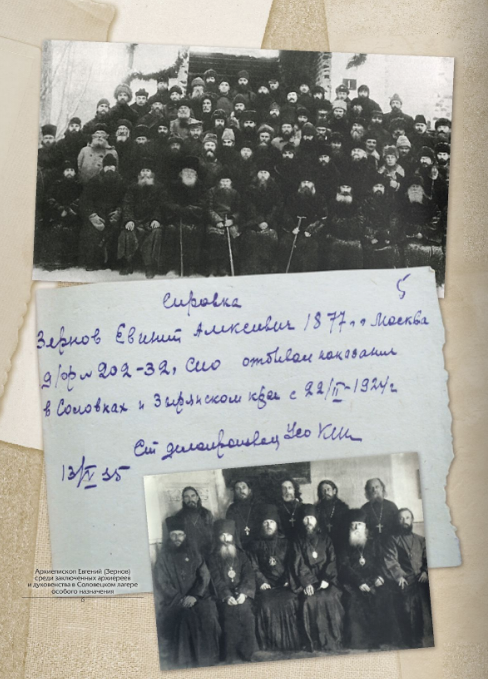 5
Справка
Зернов Евгений Алексеевич 1877 г. г. Москва
д/ф № 202-32, отбывал наказания
в Соловках и Зырянском крае с 22/II-1924 г
Ст делопроизвод
13/IV 35
Архиепископ Евгений (Зернов)
среди заключенных архиереев
и духовенства в Соловецком лагере
особого назначения